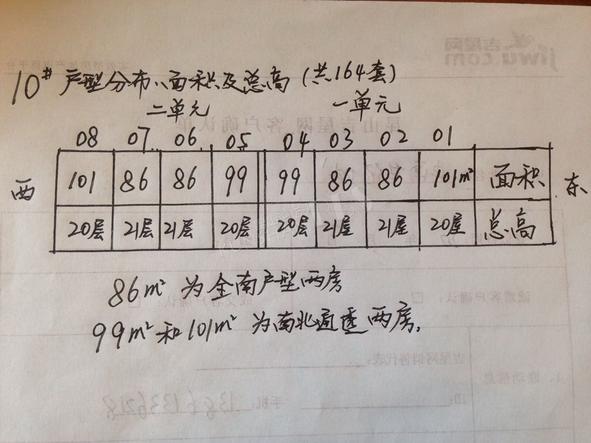 10# 户型分布、面积及总高(共164套)
二单元 一单元
08 07 06 05 04 03 02 01
西 101 86 86 99 99 86 86 101m² 面积 东
20层 21层 21层 20层 20层 21层 21层 20层 总高
86m² 为全南户型两房
99m² 和101m² 为南北通透两房.
吉屋网
jiwu.com